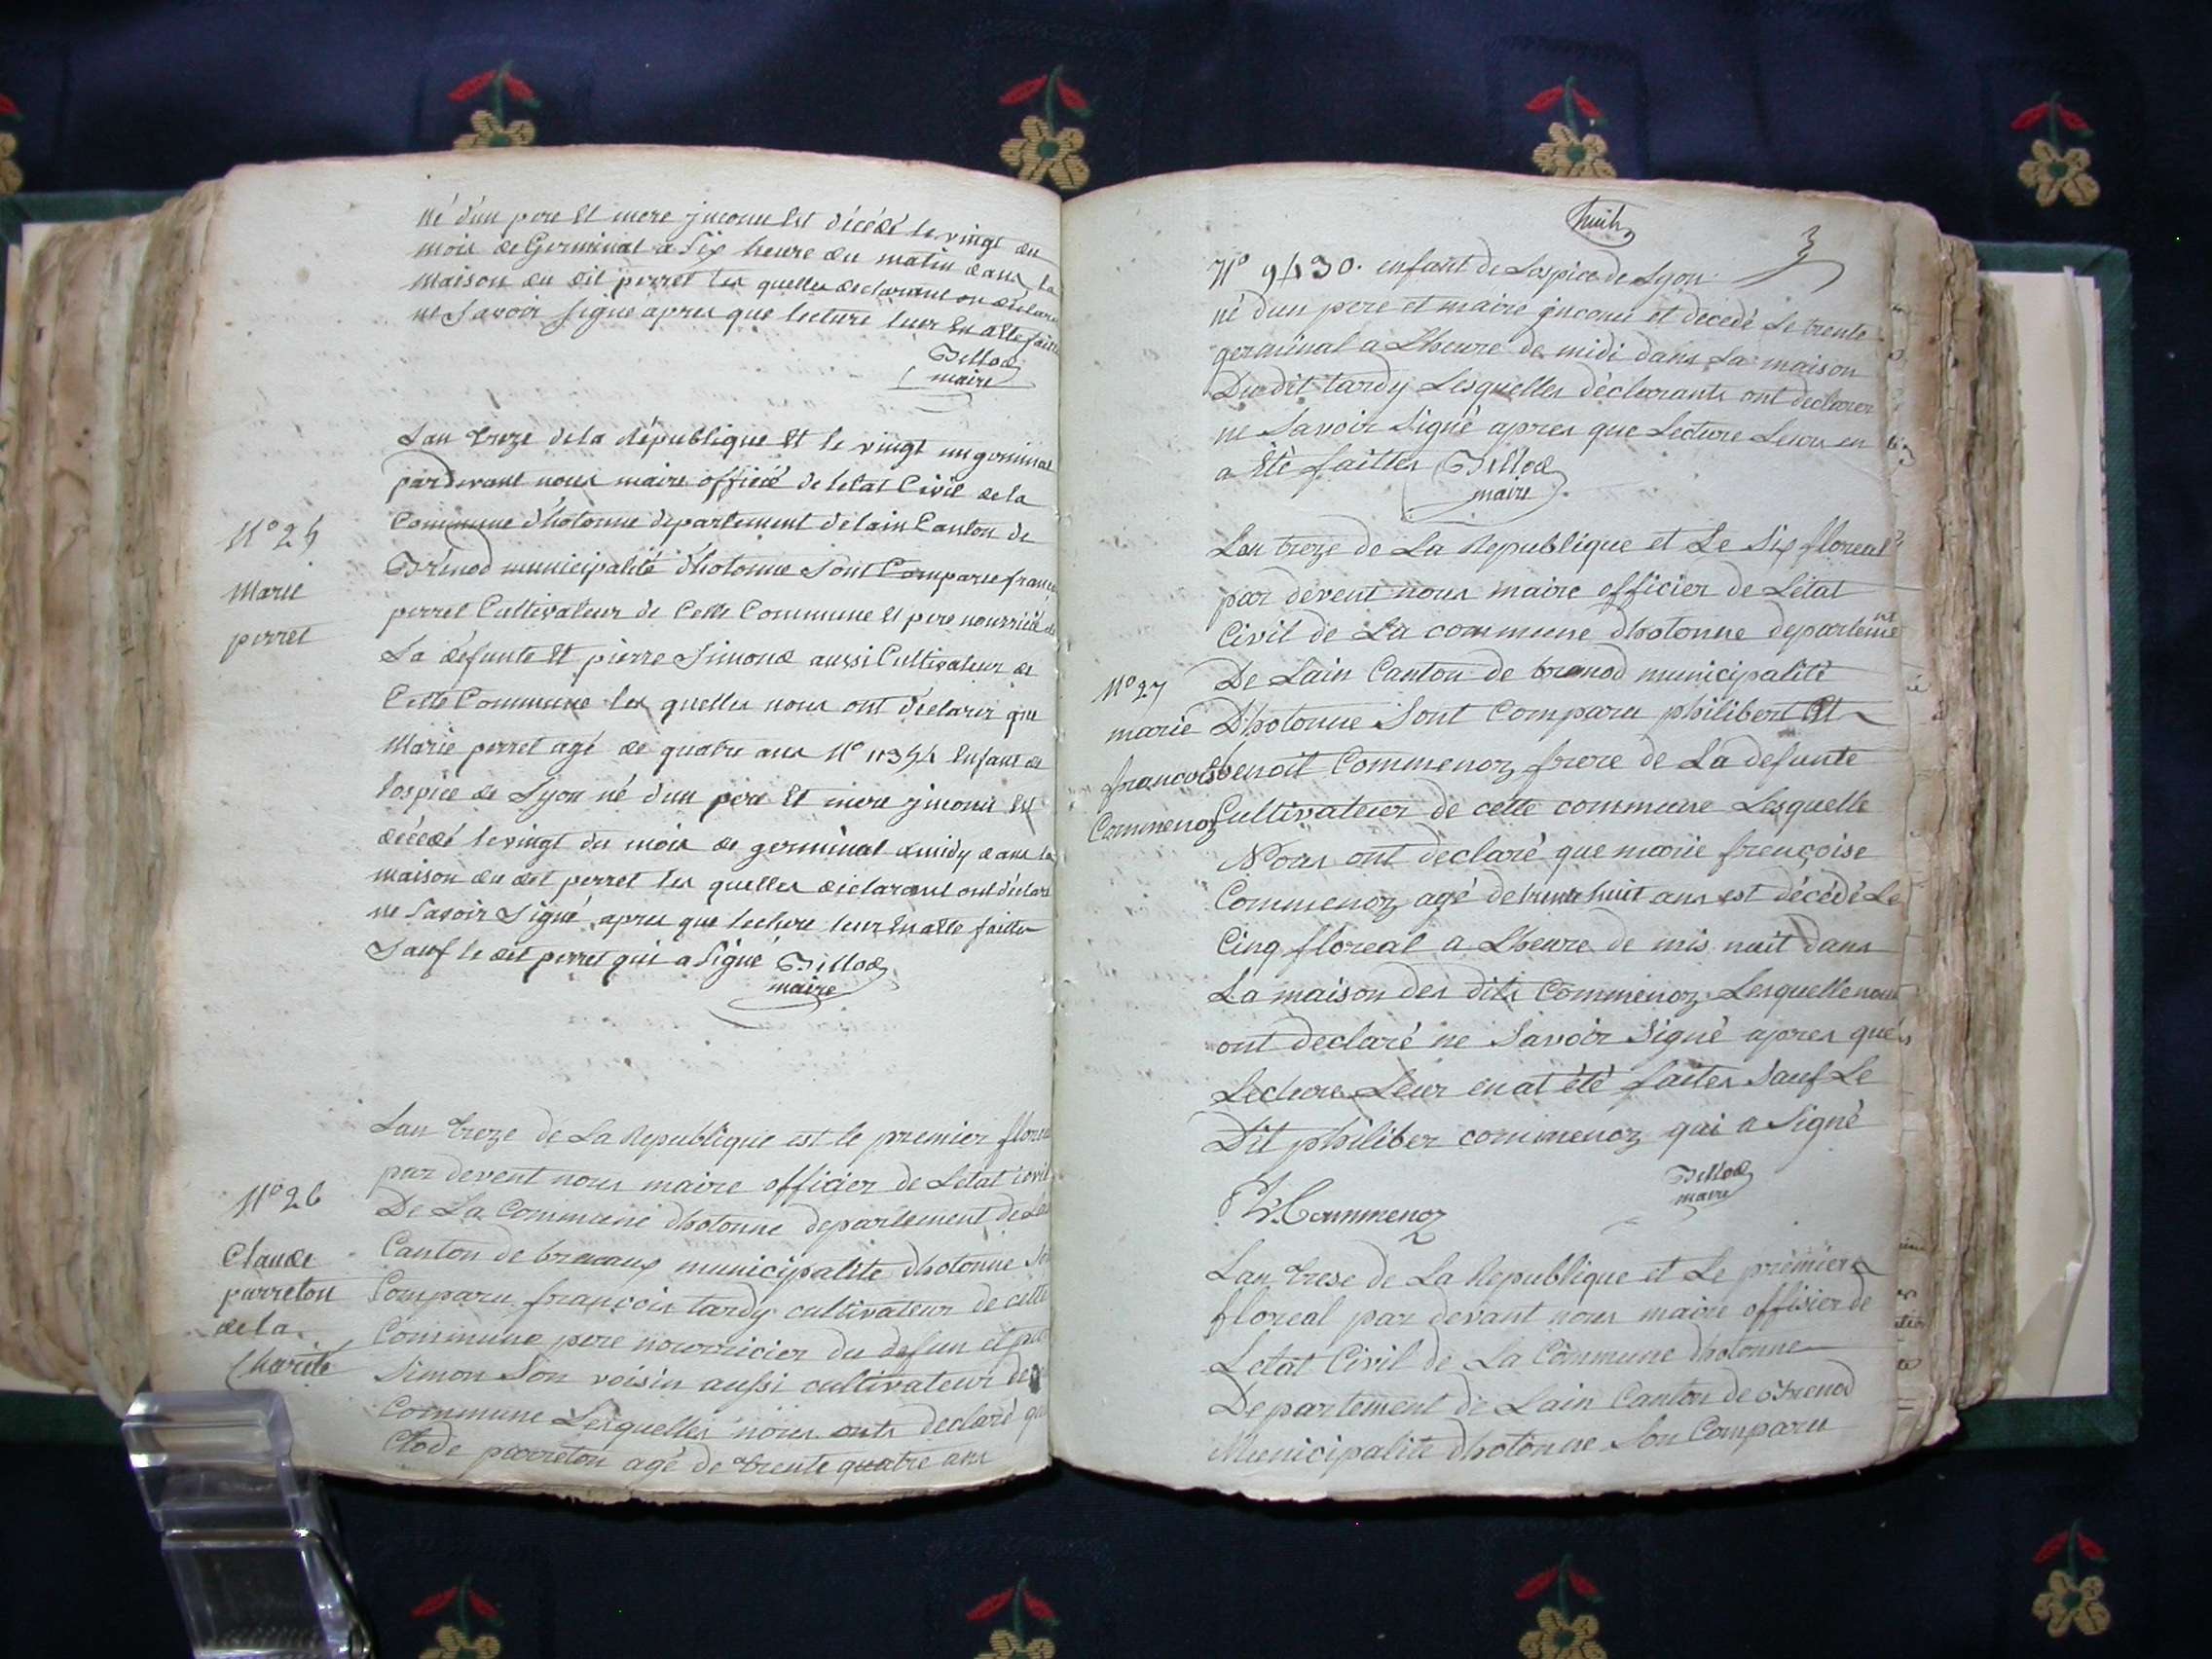 né d'un pere Et mere jnconu Est décédé le vingt du
mois de Germinal a Six heure du matin dans la
maison du dit perret les quelles declarant on déclare
ne Savoir signé apres que lecture leur En a Eté faitte
Billod
maire
Lan treze dela République Et le vingt un germinal
pardevant nous maire officié de letat Civil dela
Commune d'hotonne departement delain Canton de
Brénod municipalité d'hotonne Sont Comparu
perret Cultivateur de Cette Commune Et pere nourricié de
La défunte Et pierre Simond aussi Cultivateur de
Cette Commune les quelles nous ont déclarer que
Marie perret agé de quatre ans N° Enfant de
lospice de Lyon né d'un pére Et mere jnconu Est
décédé le vingt du mois de germinal a midy dans la
maison du dit perret les quelles declarant ont déclaré
ne Savoir Signé apres que lecture leur En a Eté faitte
Sauf le dit perret qui a Signé Billod
maire
N° 25
Marie
perret
Lan treze de La Republique est le premier floreal
par devent nous maire officier de Letat civil
De La Commune dhotonne departement de
Canton de municipalité dhotonne
Comparu françois tardy cultivateur de cette
Commune pere nourricier du defun et
Simon Son voisin aussi cultivateur de
Commune Lesquelles nous onts declaré que
Clode parreton agé de trente quatre ans
N° 26
Claude
parreton
de la
Charité
huit
3
N° 9430. enfant de Lospice de Lyon
né d'un pere et maire jnconu et décédé Le trente
germinal a Lheure de midi dans La maison
Du dit tardy Lesquelles déclarants ont declarer
ne Savoir Signé apres que Lecture Leur en
a été faittes Billod
maire
Lan treze de La Republique et Le Six floreal
par devent nous maire officier de Létat
Civil de La commune dhotonne departement
De Lain Canton de brenod municipalité
Dhotonne Sont Comparu philibert Et
benoit Commenoz frere de La defunte
Cultivateur de cette commune Lesquelle
Nous ont declaré que marie françoise
Commenoz agé de huit ans est décédé Le
Cinq floreal a Lheure de mis nuit dans
La maison des dits Commenoz Lesquelle nous
ont declaré ne Savoir Signé apres que
Lecture Leur en at été faites Sauf Le
Dit philiber commenoz qui a Signé
Billod
maire
Ph Commenoz
N° 27
marie
francoise
Commenoz
Lan trese de La Republique et Le premier
floreal par devant nous maire offisier de
Letat Civil de La Commune dhotonne
Departement de Lain Canton de Brenod
Municipalité dhotonne Son Comparu